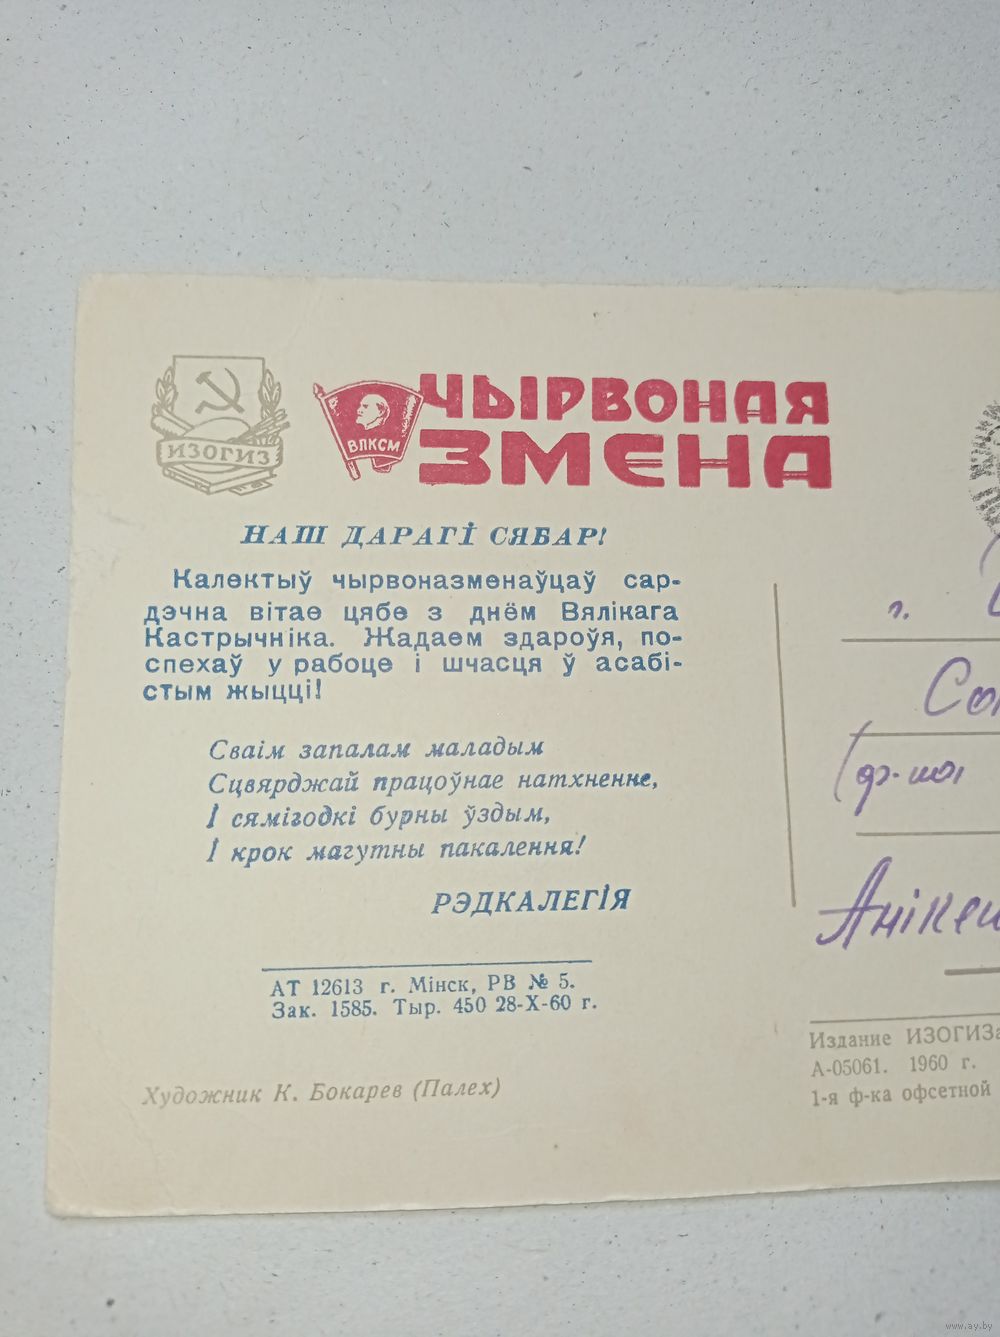 ИЗОГИЗ
ВЛКСМ
ЧЫРВОНАЯ
ЗМЕНА
НАШ ДАРАГІ СЯБАР!
Калектыў чырвоназменаўцаў сар-
дэчна вітае цябе з днём Вялікага
Кастрычніка. Жадаем здароўя, по-
спехаў у рабоце і шчасця ў асабі-
стым жыцці!
Сваім запалам маладым
Сцвярджай працоўнае натхненне,
І сямігодкі бурны ўздым,
І крок магутны пакалення!
РЭДКАЛЕГІЯ
АТ 12613 г. Мінск, РВ № 5.
Зак. 1585. Тыр. 450 28-X-60 г.
Художник К. Бокарев (Палех)
г.
Издание ИЗОГИЗа
А-05061. 1960 г.
1-я ф-ка офсетной
www.ay.by